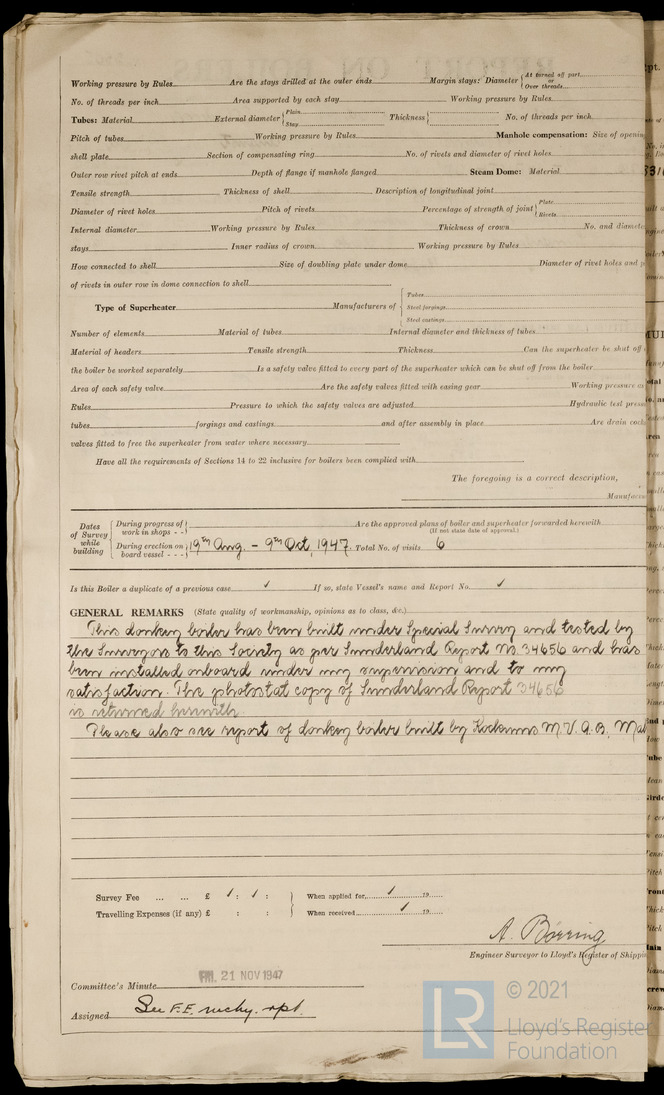 Working pressure by Rules Are the stays drilled at the outer ends Margin stays: Diameter { At turned off part or Over threads
No. of threads per inch Area supported by each stay Working pressure by Rules
Tubes: Material External diameter { Plain Stay Thickness { No. of threads per inch
Pitch of tubes Working pressure by Rules Manhole compensation: Size of opening
shell plate Section of compensating ring No. of rivets and diameter of rivet holes
Outer row rivet pitch at ends Depth of flange if manhole flanged Steam Dome: Material
Tensile strength Thickness of shell Description of longitudinal joint
Diameter of rivet holes Pitch of rivets Percentage of strength of joint { Plate Rivets
Internal diameter Working pressure by Rules Thickness of crown No. and diamete
stays Inner radius of crown Working pressure by Rules
How connected to shell Size of doubling plate under dome Diameter of rivet holes and p
of rivets in outer row in dome connection to shell
Type of Superheater Manufacturers of { Tubes Steel forgings Steel castings
Number of elements Material of tubes Internal diameter and thickness of tubes
Material of headers Tensile strength Thickness Can the superheater be shut off
the boiler be worked separately Is a safety valve fitted to every part of the superheater which can be shut off from the boiler
Area of each safety valve Are the safety valves fitted with easing gear Working pressure as
Rules Pressure to which the safety valves are adjusted Hydraulic test press
tubes forgings and castings and after assembly in place Are drain cock
valves fitted to free the superheater from water where necessary
Have all the requirements of Sections 14 to 22 inclusive for boilers been complied with
The foregoing is a correct description,
Manufac
Dates of Survey while building { During progress of work in shops - - } Are the approved plans of boiler and superheater forwarded herewith
(If not state date of approval.)
{ During erection on board vessel - - - } 19th Aug. - 9th Oct, 1947. Total No. of visits 6
Is this Boiler a duplicate of a previous case ✓ If so, state Vessel's name and Report No. ✓
GENERAL REMARKS (State quality of workmanship, opinions as to class, &c.)
This donkey boiler has been built under Special Survey and tested by
the Surveyors to this Society as per Sunderland Report No. 34656 and has
been installed onboard under my supervision and to my
satisfaction. The photostat copy of Sunderland Report 34656
is returned herewith.
Please also see report of donkey boiler built by Kockums M.V. A.B, Mal
Survey Fee ... ... £ ✓ : ✓ : } When applied for, ✓ 19
Travelling Expenses (if any) £ : : } When received ✓ 19
A. Börring
Engineer Surveyor to Lloyd's Register of Shippin
Committee's Minute FRI. 21 NOV 1947
Assigned See F.E. mchy. rpt.
LR © 2021
Lloyd's Register
Foundation